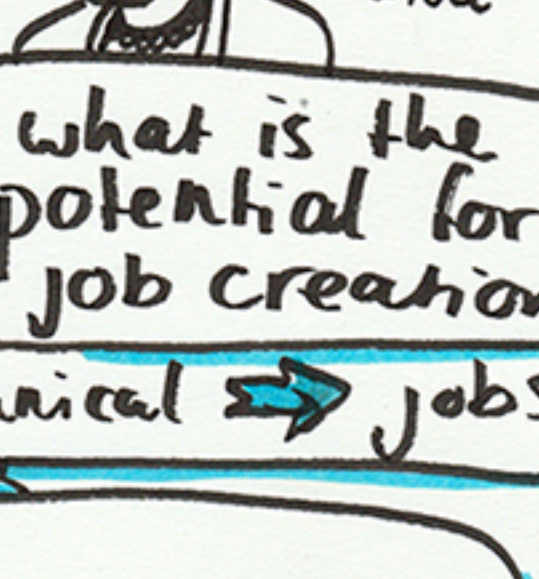 what is the
potential for
job creation
jobs